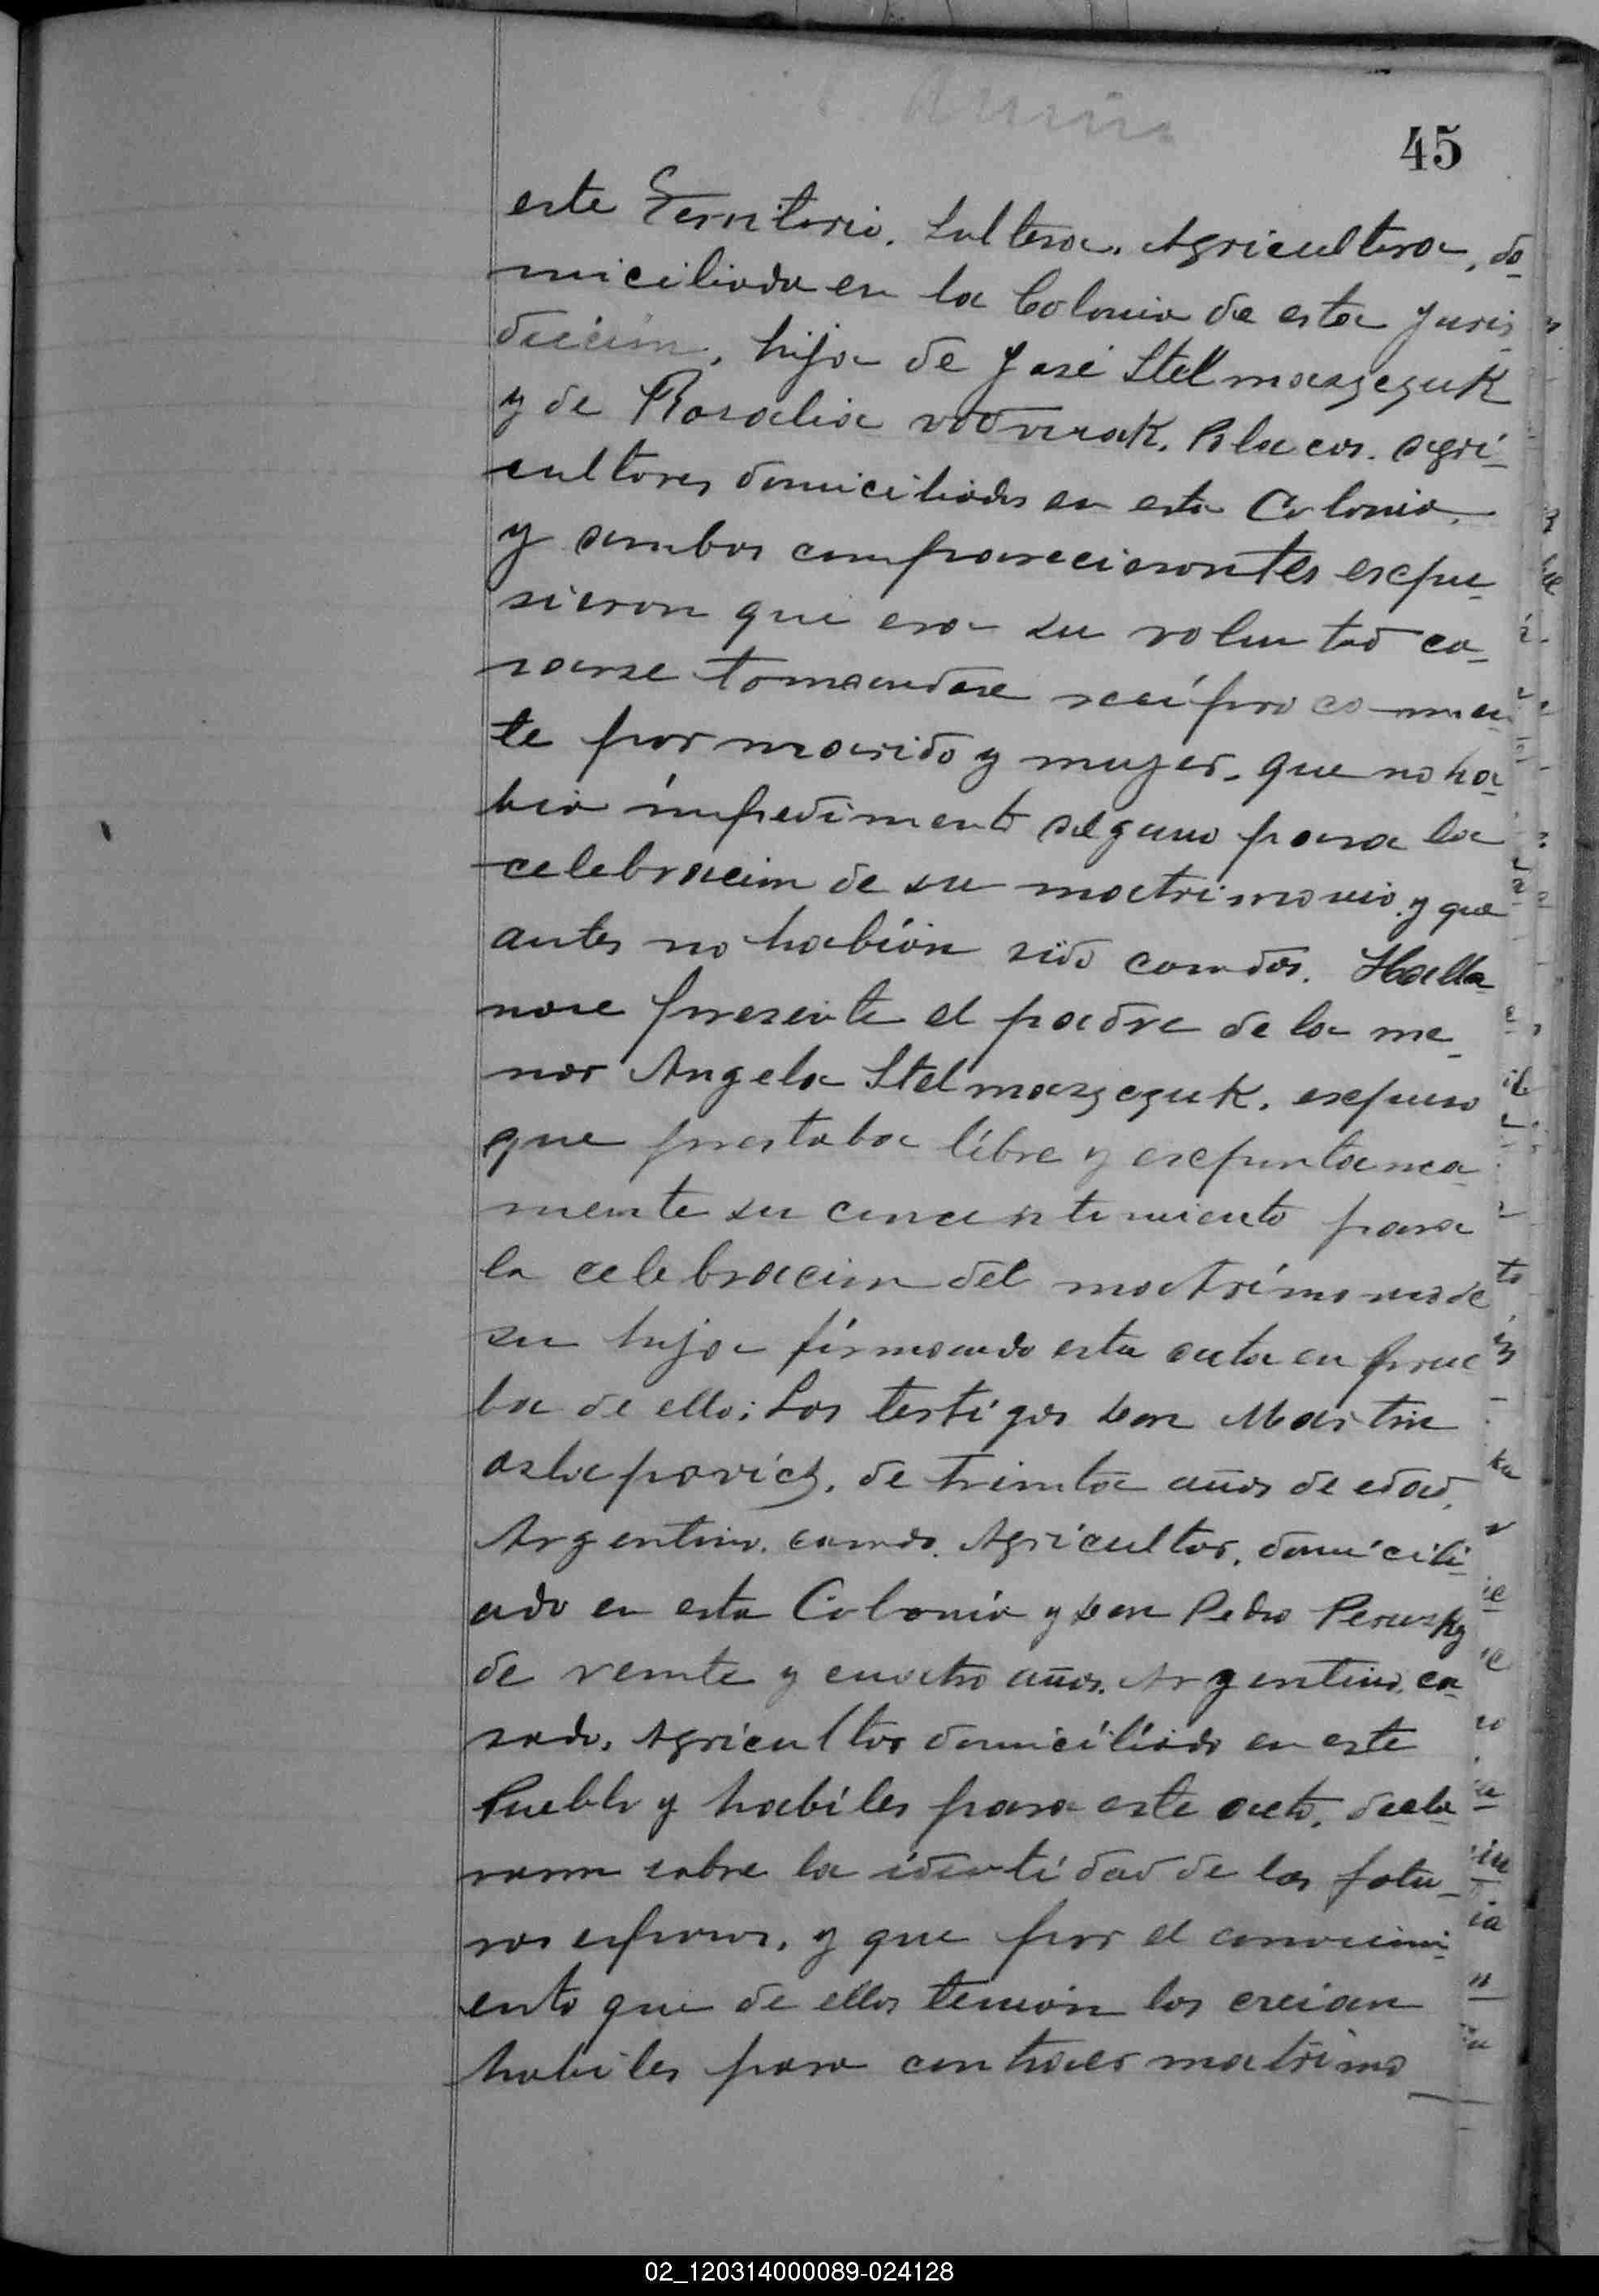 45
este Territorio. Soltera. Agricultora, do-
miciliada en la Colonia de esta Juris
dicción, hija de José Stelmaszczuk
y de Rosalia Vodvrak. Polacos. agri-
cultores domiciliados en esta Colonia.
y ambos comparecierontes expu-
sieron que era su voluntad ca-
sarse tomandose recíprocamen
te por marido y mujer, que no ha-
bia impedimento alguno para la
celebracion de su matrimonio y que
antes no habian sido casados. Halla-
nose presente el padre de la me-
nor Angela Stelmaszczuk. expuso
que prestaba libre y expontanea-
mente su concentimiento para
la celebracion del matrimonio de
su hija firmando esta acta en prue
ba de ello; Los testigos don Martin
Aslapovicz, de treinta años de edad.
Argentino. casado. Agricultor. domicili-
ado en esta Colonia y don Pedro Perusky
de veinte y cuatro años. Argentino. ca-
sado. Agricultor domiciliado en este
Pueblo y habiles para este acto. decla-
raron sobre la identidad de los futu-
ros esposos, y que por el conocimi-
ento que de ellos tenian los creian
habiles para contraer matrimo-
02_120314000089-024128